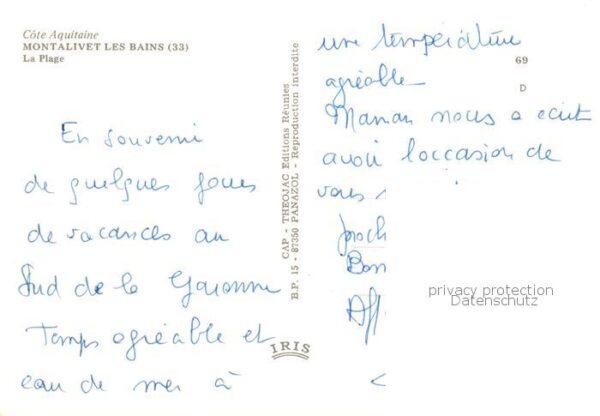 Côte Aquitaine
MONTALIVET LES BAINS (33)
La Plage
En souvenir
de quelques jours
de vacances au
Sud de la Garonne
Temps agréable et
eau de mer à
CAP - THEOJAC Editions Réunies
B.P. 15 - 87350 PANAZOL - Reproduction interdite
IRIS
une température
agréable
69
D
Maman nous a écrit
avoir l'occasion de
vous
proch
Bon
Aff
privacy protection
Datenschutz